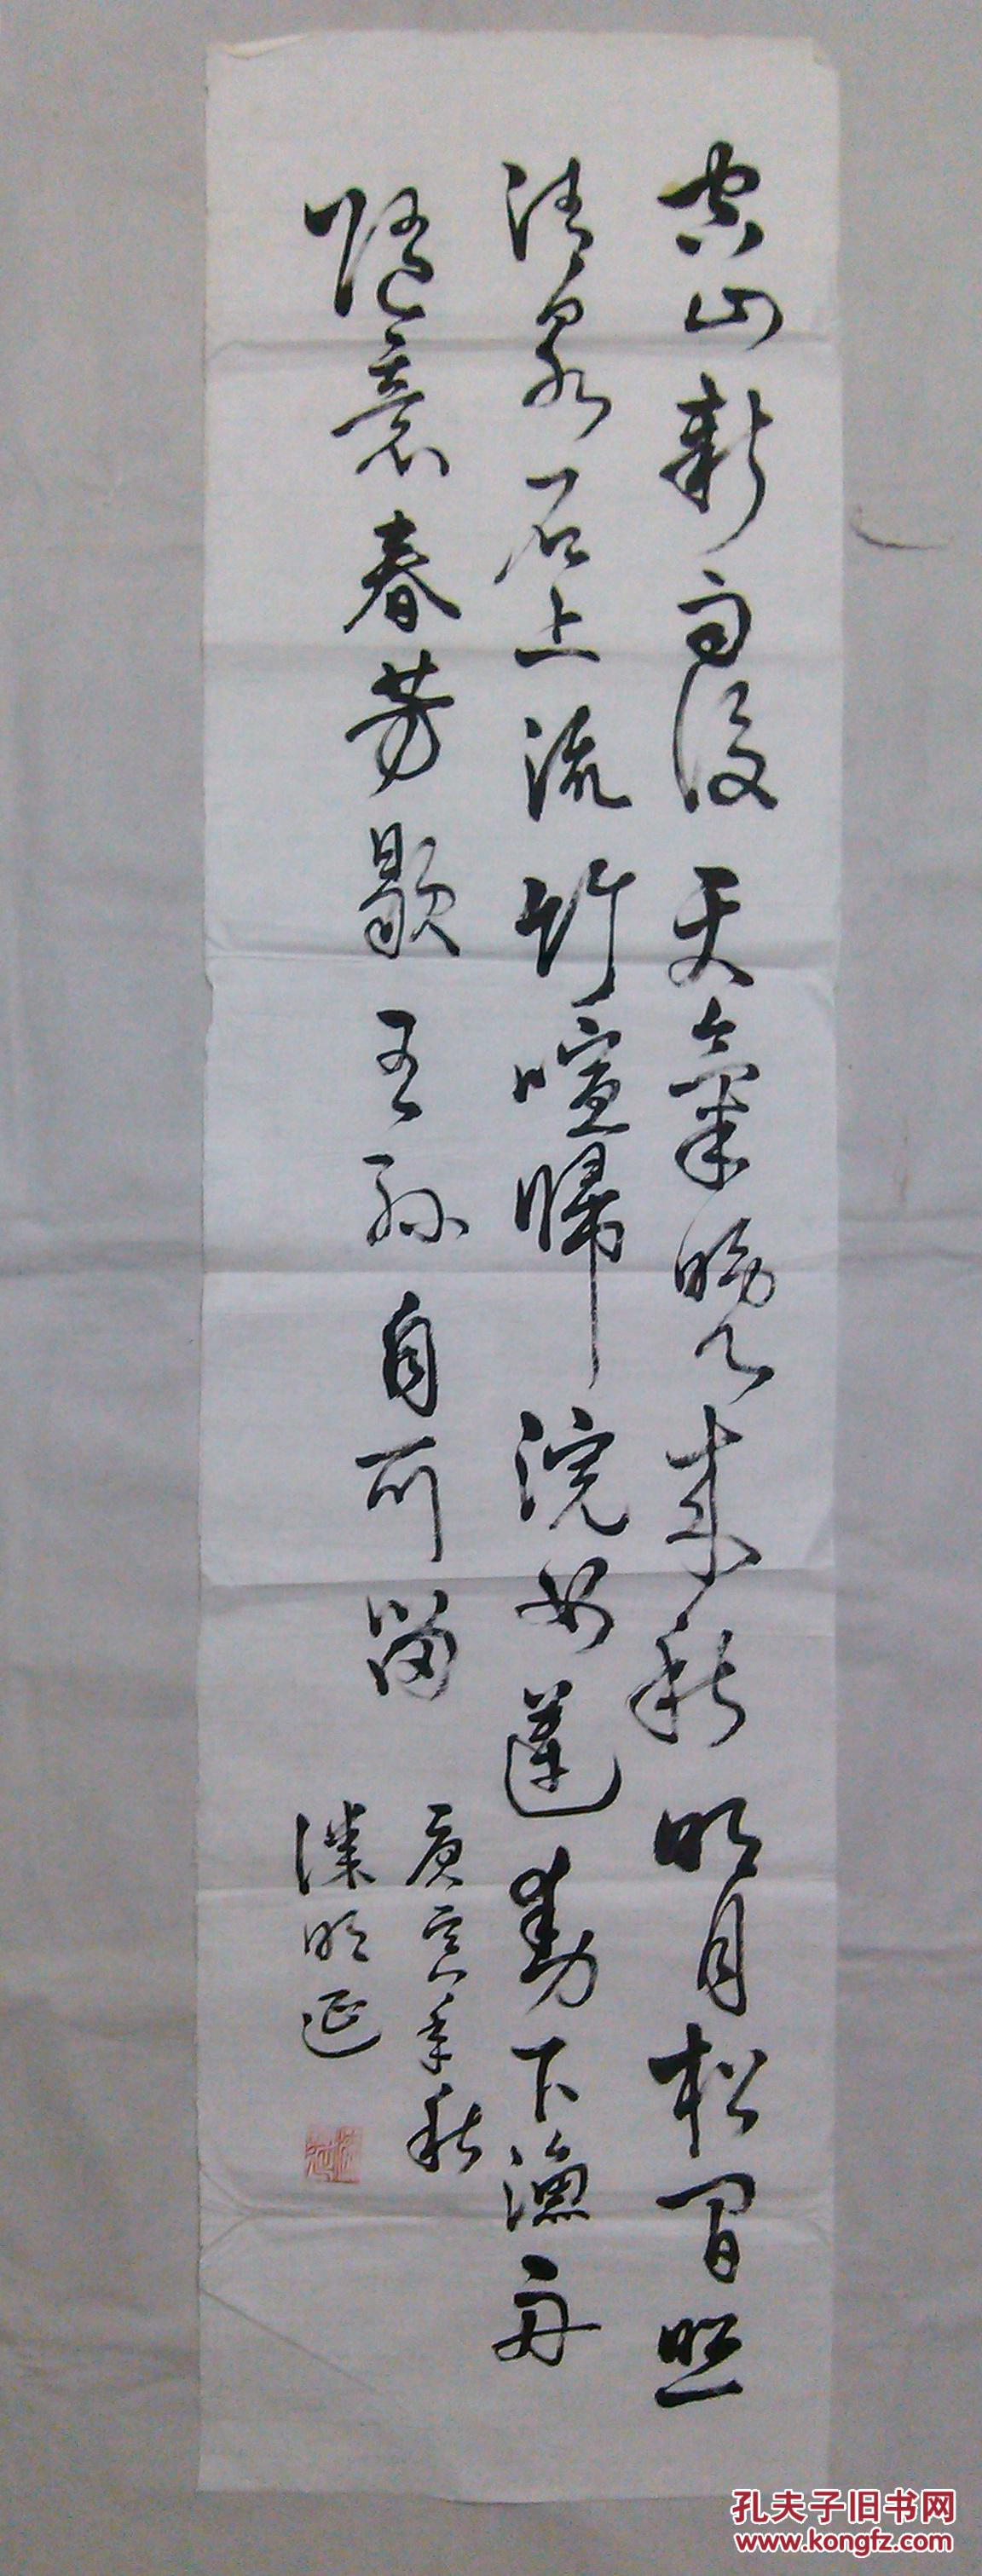 空山新雨後天氣晚来秋明月松間照
清泉石上流竹喧歸浣女蓮動下漁舟
隨意春芳歇王孫自可留
庚寅年秋
濮明延
孔夫子旧书网
www.kongfz.com